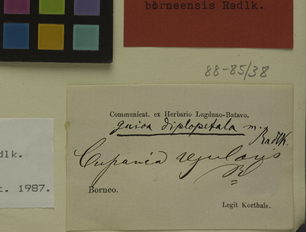 borneensis Radlk.
88-85/38
Communicat. ex Herbario Lugduno-Batavo.
guioa diplopetala m. Radlk.
Cupania regularis
Borneo.
Legit Korthals.
dlk.
t. 1987.